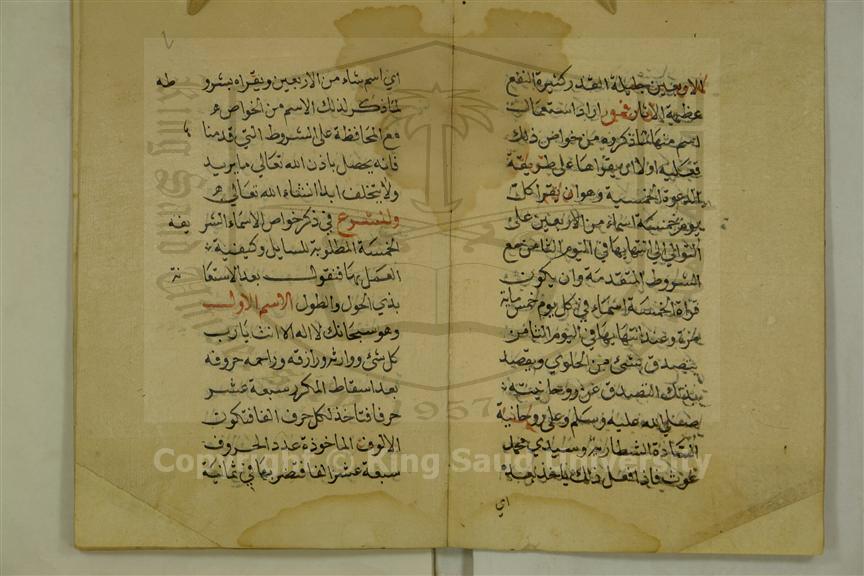 الاربعين جليلة القدر كثيرة النفع
عظيمة الاثار فمن اراد استعمال
اسم منها لما ذكروه من خواص ذلك
فعليه اولا ان يقراها على طريقة
الدعوة الخمسية وهو ان يقرا كل
يوم خمسة اسماء من الاربعين على
التوالي الى انتهايها في اليوم الثامن مع
الشروط المتقدمة وان يكون
قراة الخمسة اسماء في كل يوم خمس ماية
مرة وعند انتهايها في اليوم الثامن
يتصدق بشئ من الحلوي ويقصد
بذلك التصدق عن روحانيته
صلى الله عليه وسلم وعلى روحانية
السادة الشطاريه وسيدي محمد
غوث فاذا فعل ذلك ياخذ
اي
اي اسم شاء من الاربعين ويقراه بشروطه
لما ذكر لذلك الاسم من الخواص
مع المحافظة على الشروط التي قدمناها
فانه يحصل باذن الله تعالى ما يريد
ولا يتخلف ابدا انشاء الله تعالى
ولنشرع في ذكر خواص الاسماء الشريفة
الخمسة المطلوبة للسايل وكيفية
العمل بها فنقول بعد الاستعانة
بذي الحول والطول الاسم الاول
وهو سبحانك لا اله الا انت يارب
كل شئ ووارثه ورازقه وراحمه حروفه
بعد اسقاط المكرر سبعة عشر
حرفا فتاخذ لكل حرف الفا فتكون
الالوف الماخوذة عدد الحروف
سبعة عشر الفا فتضربها في ثمانية
Copyright © King Saud University
1957